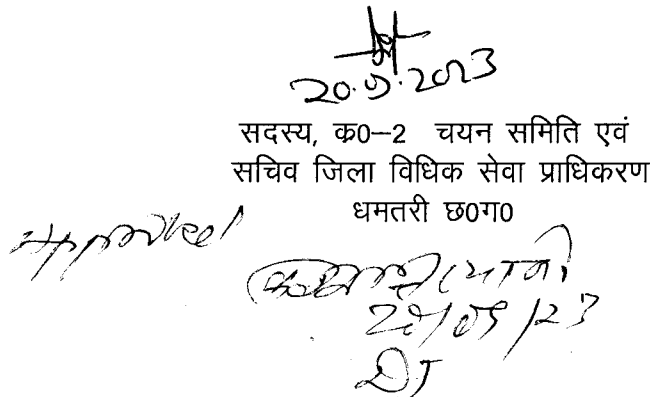 20.9.2023
सदस्य, क0–2 चयन समिति एवं
सचिव जिला विधिक सेवा प्राधिकरण
धमतरी छ0ग0
Approved
/23
DJ